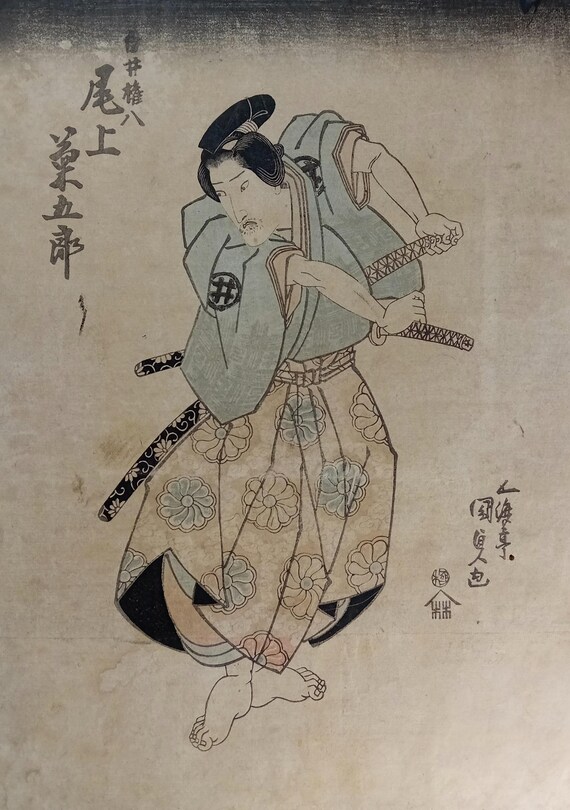 白井権八
尾上
菊五郎
五渡亭
国貞画
極
林